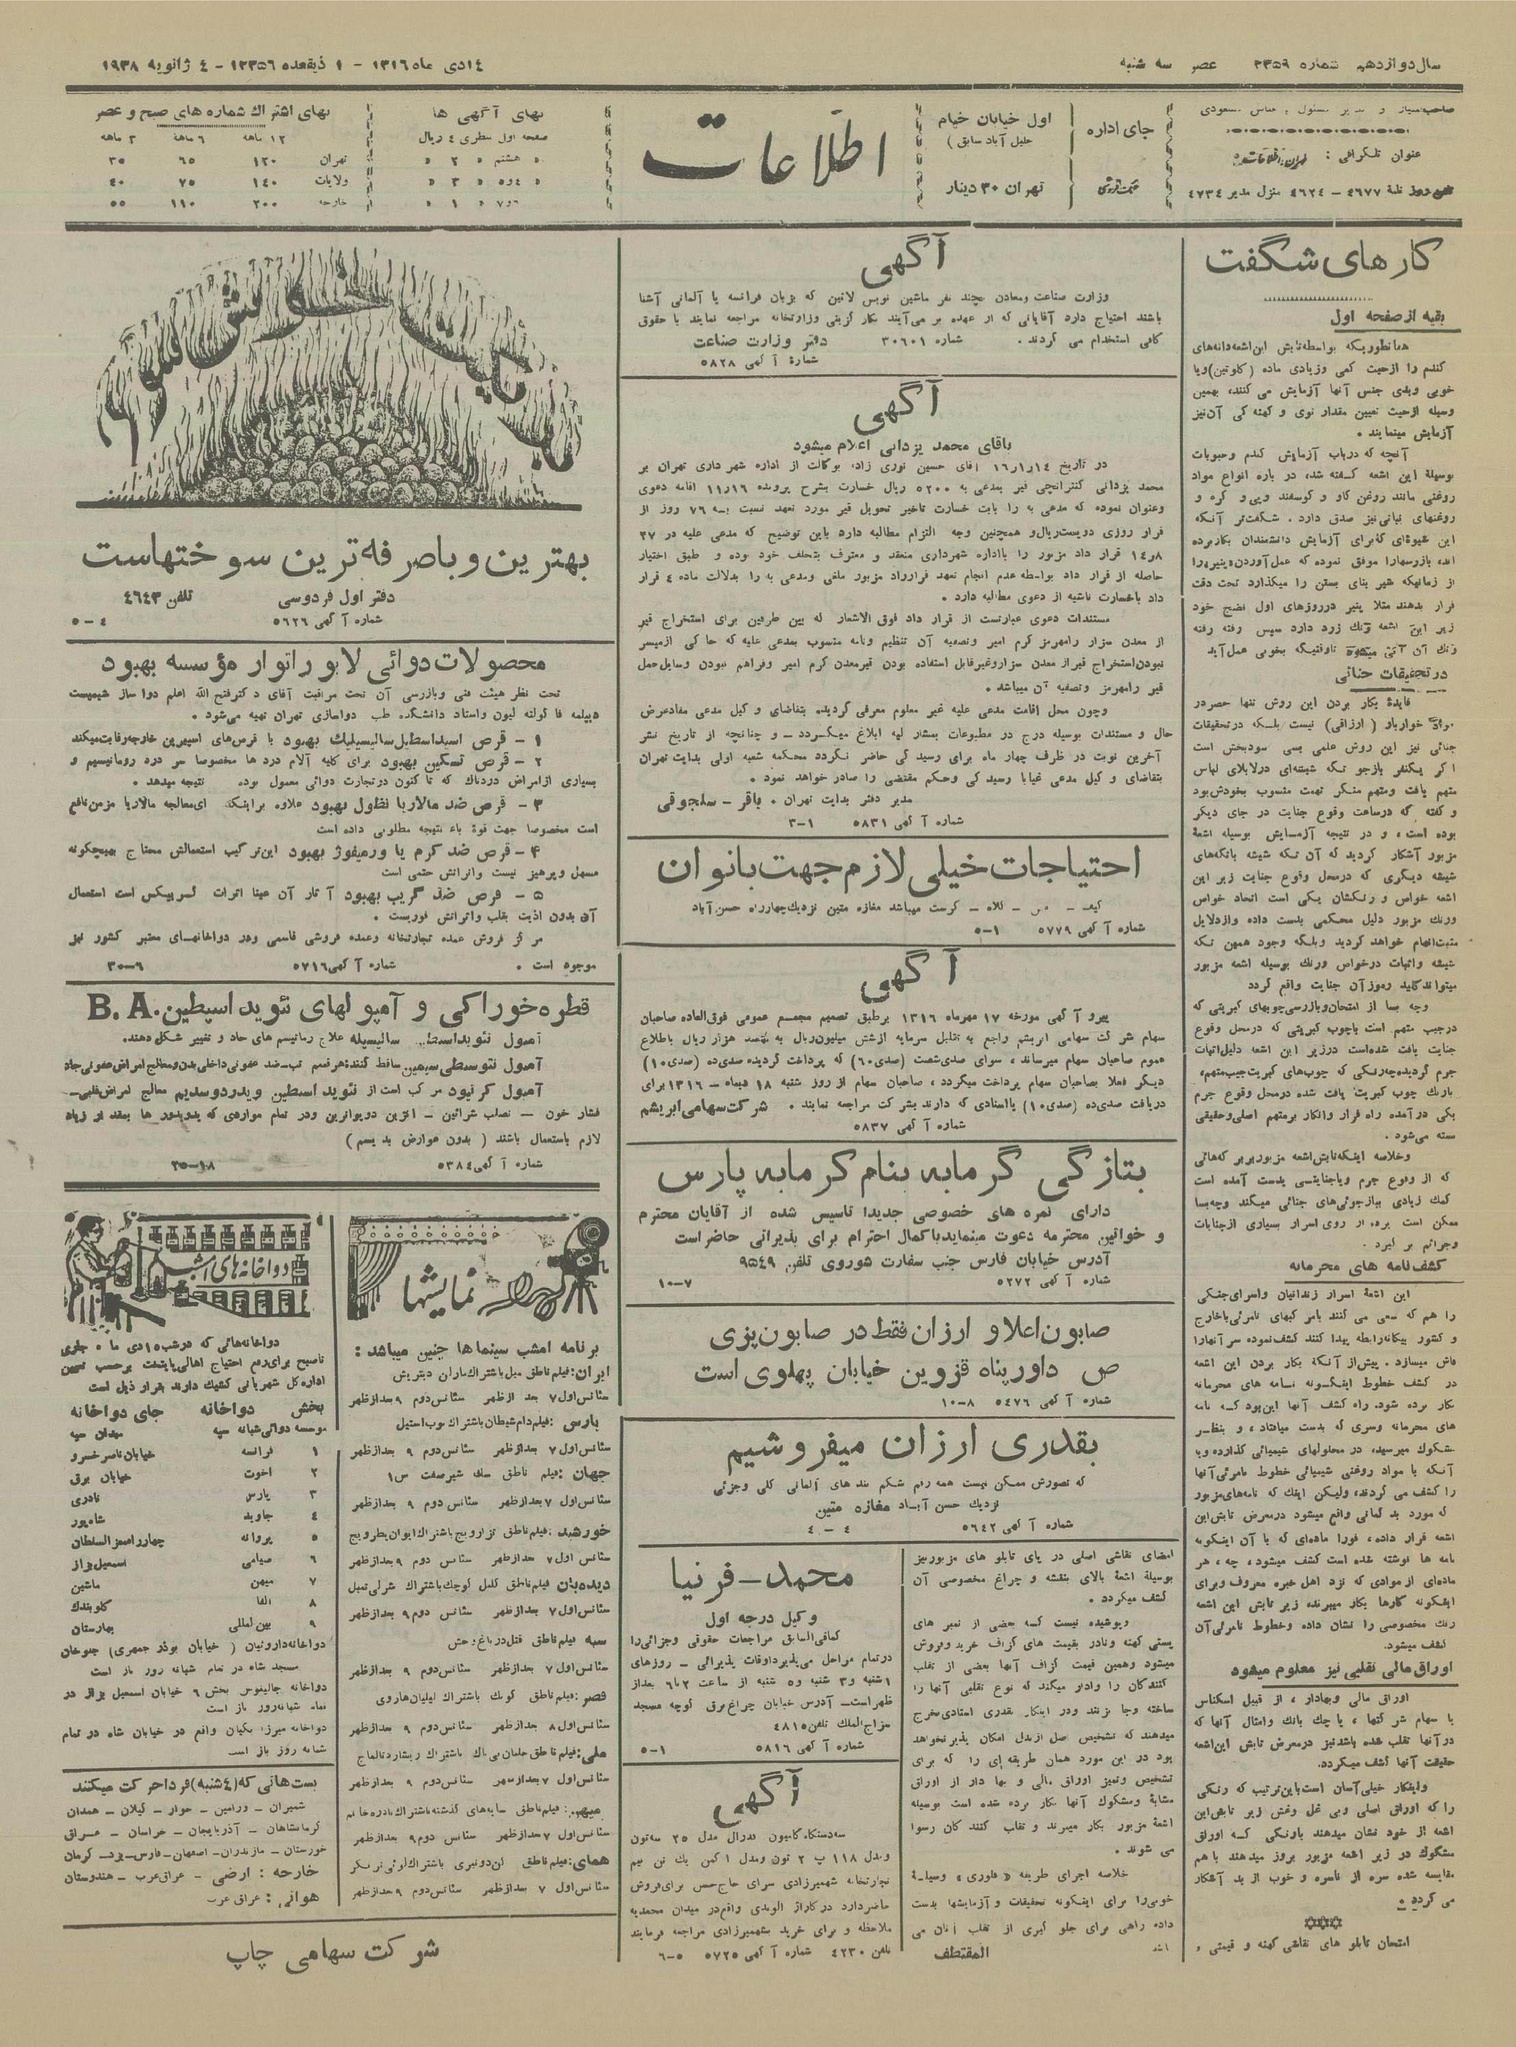 سال دوازدهم شماره ۳۳۵۹ عصر سه شنبه
۱۴ دی ماه ۱۳۱۶ - ۱ ذیقعده ۱۳۳۵۶ - ۴ ژانویه ۱۹۳۸
عنوان تلگرافی :
منزل مدیر ۴۷۳۴
جای اداره
اول خیابان خیام
جلیل آباد سابق )
تکفروشی
تهران ۳۰ دینار
اطلاعات
بهای آگهی ها
صفحه اول سطری ۴ ریال
بهای اشتراك شماره های صبح و عصر
۱۲ ماهه ۶ ماهه ۳ ماهه
تهران ۱۲۰ ۶۵ ۳۵
ولایات ۱۴۰ ۷۵ ۴۰
خارجه ۲۰۰ ۱۱۰ ۵۵
کارهای شگفت
بقیه از صفحه اول
همانطوریکه بواسطه تابش این اشعه دانه های
گندم را از حیث کمی و زیادی ماده (گلوتین) و یا
خوبی و بدی جنس آنها آزمایش می کنند، بهمین
وسیله از حیث تعیین مقدار نوی و کهنه گی آن نیز
آزمایش مینمایند .
آنچه که در باب آزمایش گندم و حبوبات
بوسیله این اشعه گفته شد، در باره انواع مواد
روغنی مانند روغن گاو و گوسفند و پی و کره و
روغنهای نباتی نیز صدق دارد . شگفت تر آنکه
این شیوه ای که برای آزمایش دانشمندان بکار برده
اند، بازرسها را موفق نموده که عمل آوردن «پنیر» را
از زمانیکه شیر بنای بستن را میگذارد تحت دقت
قرار بدهند مثلا پنیر در روزهای اول نضج خود
زیر این اشعه رنگ زرد دارد سپس رفته رفته
رنگ آن آبی میشود تا وقتیکه بخوبی عمل آید
در تحقیقات جنائی
فایدهٔ بکار بردن این روش تنها حصر در
مواد خواربار ( ارزاقی ) نیست بلکه در تحقیقات
جنائی نیز این روش علمی بسی سودبخش است
اگر یکنفر بازجو تکه شیشه ای در لابلای لباس
متهم یافت و متهم منکر تهمت منسوب بخودش بود
و گفته که در ساعت وقوع جنایت در جای دیگر
بوده است ، و در نتیجه آزمایش بوسیله اشعهٔ
مزبور آشکار گردید که آن تکه شیشه با تکه های
شیشه دیگری که در محل وقوع جنایت زیر این
اشعه خواص و رنگشان یکی است اتحاد خواص
و رنك مزبور دلیل محکمی بدست داده و از دلایل
مثبت اتهام خواهد گردید و بلکه وجود همین تکه
شیشه و اثبات در خواص و رنك بوسیله اشعه مزبور
میتواند کلید رموز آن جنایت واقع گردد
وچه بسا از امتحان و بازرسی چوبهای کبریتی که
در جیب متهم است با چوب کبریتی که در محل وقوع
جنایت یافت شده است در زیر این اشعه دلیل اثبات
جرم گردیده چه رنگی که چوب های کبریت جیب متهم،
با رنك چوب کبریت یافت شده در محل وقوع جرم
یکی در آمده راه فرار و انکار بر متهم اصلی و حقیقی
بسته می شود .
وخلاصه اینکه تابش اشعه مزبور بر برگه هائی
که از وقوع جرم و یا جنایتی بدست آمده است
کمك زیادی ببازجوئی های جنائی میکند وچه بسا
ممکن است پرده از روی اسرار بسیاری از جنایات
وجرائم بر گیرد .
کشف نامه های محرمانه
این اشعهٔ اسرار زندانیان و اسرای جنگی
را هم که سعی می کنند بامر کبهای نامرئی با خارج
و کشور بیگانه رابطه پیدا کنند کشف نموده سر آنها را
فاش میسازد . پیش از آنکه بکار بردن این اشعه
در کشف خطوط اینگونه نامه های محرمانه
بکار برده شود، راه کشف آنها این بود که نامه
های محرمانه و سری که بدست میافتاد ، و بنظر
مشکوك میرسید، در محلولهای شیمیائی گذارده و یا
آنکه با مواد روغنی شیمیائی خطوط نامرئی آنها
را کشف می کردند، ولیکن اینك که نامه های مزبور
که مورد بد گمانی واقع میشود در معرض تابش این
اشعه قرار داده ، فورا ماده ای که با آن اینگونه
نامه ها نوشته شده است کشف میشود ، چه ، هر
ماده ای از موادی که نزد اهل خبره معروف و برای
اینگونه کارها بکار میبرند، زیر تابش این اشعه
رنك مخصوصی را نشان داده و خطوط نامرئی آن
کشف میشود.
اوراق مالی تقلبی نیز معلوم میشود
اوراق مالی و بهادار ، از قبیل اسکناس
یا سهام شرکتها ، یا چك بانك و امثال آنها که
در آنها تقلب شده باشد نیز در معرض تابش این اشعه
حقیقت آنها کشف میگردد.
واینکار خیلی آسان است باین ترتیب که رنگی
را که اوراق اصلی و بی غل وغش زیر تابش این
اشعه از خود نشان میدهند با رنگی که اوراق
مشکوك در زیر اشعه مزبور بروز میدهند با هم
مقایسه شده سره از ناسره و خوب از بد آشکار
می گردد .
امتحان تابلو های نقاشی کهنه و قیمتی ،
آگهی
وزارت صناعت و معادن بچند نفر ماشین نویس لاتین که بزبان فرانسه یا آلمانی آشنا
باشند احتیاج دارد آقایانی که از عهده بر می آیند بکار گزینی وزارتخانه مراجعه نمایند با حقوق
کافی استخدام می گردند . شماره ۳۰۶۰۱ دفتر وزارت صناعت
شمارهٔ آ گهی ۵۸۲۸
آگهی
باقای محمد یزدانی اعلام میشود
در تاریخ ۱۶/۱/۱۴ آقای حسین نوری زاد بوکالت از اداره شهرداری تهران بر
محمد یزدانی کنتراتچی قیر بمدعی به ۵۲۰۰ ریال خسارت بشرح پرونده ۱۱/۱۶ اقامه دعوی
وعنوان نموده که مدعی به را بابت خسارت تاخیر تحویل قیر مورد تعهد نسبت به ۷۶ روز از
قرار روزی دویست ریال و همچنین وجه التزام مطالبه دارد باین توضیح که مدعی علیه در ۲۷
۸/۱۴ قرار داد مزبور را با اداره شهرداری منعقد و معترف بتخلف خود بوده و طبق اختیار
حاصله از قرار داد بواسطه عدم انجام تعهد قرارداد مزبور ملغی ومدعی به را بدلالت ماده ۴ قرار
داد با خسارت ناشیه از دعوی مطالبه دارد .
مستندات دعوی عبارتست از قرار داد فوق الاشعار که بین طرفین برای استخراج قیر
از معدن سزار رامهرمز کرم امیر وتصفیه آن تنظیم ونامه منسوب بمدعی علیه که حاکی از میسر
نبودن استخراج قیر از معدن سزار و غیر قابل استفاده بودن قیر معدن کرم امیر و فراهم نبودن وسایل حمل
قیر رامهرمز وتصفیه آن میباشد .
وچون محل اقامت مدعی علیه غیر معلوم معرفی گردیده بتقاضای و کیل مدعی مفاد عرض
حال و مستندات بوسیله درج در مطبوعات بمشار الیه ابلاغ میگردد - و چنانچه از تاریخ نشر
آخرین نوبت در ظرف چهار ماه برای رسید گی حاضر نگردد محکمه شعبه اولی بدایت تهران
بتقاضای و کیل مدعی غیابا رسید گی وحکم مقتضی را صادر خواهد نمود .
مدیر دفتر بدایت تهران . باقر - سلجوقی
شماره آ گهی ۵۸۳۱ ۳-۱
احتیاجات خیلی لازم جهت بانوان
کلاه - کرست میباشد مغازه متین نزدیك چهارراه حسن آباد
شماره آ گهی ۵۷۷۹ ۵-۱
آگهی
پیرو آ گهی مورخه ۱۷ مهرماه ۱۳۱۶ بر طبق تصمیم مجمع عمومی فوق العاده صاحبان
سهام شرکت سهامی ابریشم راجع به تقلیل سرمایه از شش میلیون ریال به نهصد هزار ریال باطلاع
عموم صاحبان سهام میرساند ، سوای صدی شصت (صدی ۶۰) که پرداخت گردیده صدی ده (صدی ۱۰)
دیگر فعلا بصاحبان سهام پرداخت میگردد ، صاحبان سهام از روز شنبه ۱۸ دیماه - ۱۳۱۶ برای
دریافت صدی ده (صدی ۱۰) با اسنادی که دارند بشرکت مراجعه نمایند . شرکت سهامی ابریشم
شماره آ گهی ۵۸۳۷
بتازگی گرمابه بنام گرمابه پارس
دارای نمره های خصوصی جدیدا تاسیس شده از آقایان محترم
و خواتین محترمه دعوت مینماید با کمال احترام برای پذیرائی حاضر است
آدرس خیابان فارس جنب سفارت شوروی تلفن ۹۵۴۹
شماره آ گهی ۵۲۷۲ ۱۰-۷
صابون اعلا و ارزان فقط در صابون پزی
ص داورپناه قزوین خیابان پهلوی است
شماره آ گهی ۵۴۷۶ ۱۰-۸
بقدری ارزان میفروشیم
که تصورش ممکن نیست همه رقم شکم بند های آلمانی کلی و جزئی
نزدیك حسن آباد مغازه متین
شماره آ گهی ۵۶۴۲ ۴-۴
امضای نقاشی اصلی در پای تابلو های مزبور نیز
بوسیله اشعهٔ بالای بنفشه و چراغ مخصوصی آن
کشف میگردد .
وپوشیده نیست که بعضی از تمبر های
پستی کهنه ونادر بقیمت های گزاف خرید و فروش
میشود وهمین قیمت گزاف آنها بعضی از تقلب
کنندگان را وادار میکند که نوع تقلبی آنها را
ساخته وجا بزنند ودر اینکار بقدری استادی بخرج
میدهند که تشخیص اصل از بدل امکان پذیر نخواهد
بود در این مورد همان طریقه ای را که برای
تشخیص وتمیز اوراق مالی و بها دار از اوراق
مشابه ومشکوك آنها بکار برده شده است بوسیله
اشعهٔ مزبور بکار میبرند و تقلب کنند گان رسوا
می شوند .
خلاصه اجرای طریقه « فلوری » وسیلهٔ
خوبی را برای اینگونه تحقیقات و آزمایشها بدست
داده راهی برای جلو گیری از تقلب آنان می
باشد المقتطف
محمد - فرنیا
وکیل درجه اول
کمافی السابق مراجعات حقوقی و جزائی را
در تمام مراحل می پذیرد اوقات پذیرائی - روزهای
۱ شنبه و ۳ شنبه و ۵ شنبه از ساعت ۲ تا ۶ بعد از
ظهر است - آدرس خیابان چراغ برق کوچه مسجد
سراج الملك تلفن ۴۸۱۵
شماره آ گهی ۵۸۱۶ ۵-۱
آگهی
سه دستگاه کامیون فدرال مدل ۲۵ سه تون
و مدل ۱۱۸ پ ۲ تون و مدل ۱ کمن یك تن نیم
تجارتخانه شهمیرزادی سرای حاج حسن برای فروش
حاضر دارد در کاراژ الوندی واقع در میدان محمدیه
ملاحظه و برای خرید بشهمیرزادی مراجعه فرمایند
تلفن ۴۲۳۰ شماره آ گهی ۵۷۲۵ ۶-۵
بهترین و باصرفه ترین سوختهاست
دفتر اول فردوسی تلفن ۴۶۴۳
شماره آ گهی ۵۶۲۶ ۵-۴
محصولات دوائی لابوراتوار مؤسسه بهبود
تحت نظر هیئت فنی وبازرسی آن تحت مراقبت آقای دکتر فتح الله اعلم دوا ساز شیمیست
دیپلمه فا کولته لیون واستاد دانشکده طب دواسازی تهران تهیه می شود .
۱ - قرص اسید استیل سالیسیلیك بهبود با قرص های اسپیرین خارجه رقابت میکند
۲ - قرص تسکین بهبود برای کلیه آلام درد ها مخصوصا سر درد روماتیسم و
بسیاری از امراض دردناك که تا کنون در تجارت دوائی معمول بوده نتیجه میدهد .
۳ - قرص ضد مالاریا نظول بهبود علاوه بر اینکه برای معالجه مالاریا مزمن نافع
است مخصوصا جهت قوهٔ باء نتیجه مطلوبی داده است
۴ - قرص ضد کرم یا ورمیفوژ بهبود این ترکیب استعمالش محتاج بهیچگونه
مسهل وپرهیز نیست واثراتش حتمی است
۵ - قرص ضد گریپ بهبود آثار آن عینا اثرات گریپکس است استعمال
آن بدون اذیت بقلب واثراتش فوریست .
مرکز فروش عمده تجارتخانه وعمده فروشی قاسمی ودر دواخانهای معتبر کشور نیز
موجود است . شماره آ گهی ۵۷۱۶ ۳۰-۹
قطره خوراکی و آمپولهای نئوید اسپطین B. A.
سالیسیله علاج رماتیسم های حاد و تغییر شکل دهنده.
فشار خون - تصلب شرائین
لازم باستعمال باشند ( بدون عوارض ید یسم )
شماره آ گهی ۵۳۸۴ ۲۵-۱۸
نمایشها
برنامه امشب سینما ها چنین میباشد :
سئانس اول ۷ بعد از ظهر سئانس دوم ۹ بعد از ظهر
سئانس اول ۷ بعد از ظهر سئانس دوم ۹ بعد از ظهر
جهان : فیلم ناطق سگ شیرصفت س ۱
سئانس اول ۷ بعد از ظهر سئانس دوم ۹ بعد از ظهر
سئانس اول ۷ بعد از ظهر سئانس دوم ۹ بعد از ظهر
دیده بان فیلم ناطق کلنل کوچك باشتراك شرلی تمپل
سئانس اول ۷ بعد از ظهر سئانس دوم ۹ بعد از ظهر
سپه فیلم ناطق قتل در باغ وحش
سئانس اول ۷ بعد از ظهر سئانس دوم ۹ بعد از ظهر
سئانس اول ۸ بعد از ظهر سئانس دوم ۹ بعد از ظهر
سئانس اول ۷ بعد از ظهر سئانس دوم ۹ بعد از ظهر
سئانس اول ۷ بعد از ظهر سئانس دوم ۹ بعد از ظهر
سئانس اول ۷ بعد از ظهر سئانس دوم ۹ بعد از ظهر
دواخانه های امشب
دواخانه هائی که در شب ۱۵ دی ماه جاری
تا صبح برای رفع احتیاج اهالی پایتخت بر حسب تعیین
اداره کل شهربانی کشیك دارند بقرار ذیل است
بخش دواخانه جای دواخانه
موسسه دوائی شبانه سپه میدان سپه
۱ فرانسه خیابان ناصر خسرو
۲ اخوت خیابان برق
۳ پارس نادری
۴ جاوید شاهپور
۵ پروانه چهارراه معز السلطان
۶ صیامی اسمعیل بزاز
۷ میهن ماشین
۸ الفا گلوبندك
۹ بین المللی بهارستان
دواخانه داروئیان ( خیابان بوذر جمهری ) جلوخان
مسجد شاه در تمام شبانه روز باز است
دواخانه جالینوس بخش ۶ خیابان اسمعیل بزاز در
تمام شبانه روز باز است
دواخانه میرزا یکیان واقع در خیابان شاه در تمام
شبانه روز باز است
پست هائی که (۴ شنبه) فردا حرکت میکنند
شمیران - ورامین - خوار - گیلان - همدان
کرمانشاهان - آذربایجان - خراسان - عراق
خوزستان - مازندران - اصفهان - فارس - یزد - کرمان
خارجه : ارضی - عراق عرب - هندوستان
هوائی : عراق عرب
شرکت سهامی چاپ